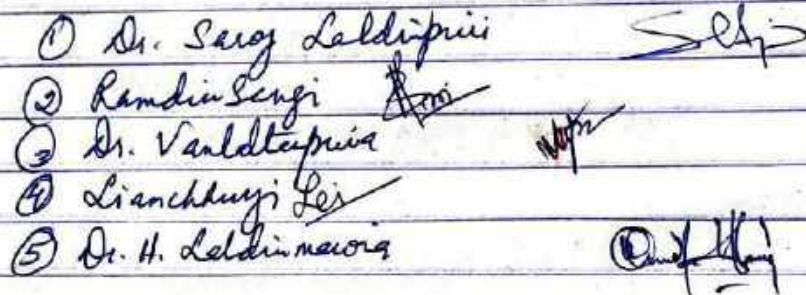 ① Dr. Saroj Laldinpuii
② Ramdinsangi
③ Dr. Vanlaltanpuia
④ Lianchhungi
⑤ Dr. H. Laldinmawia